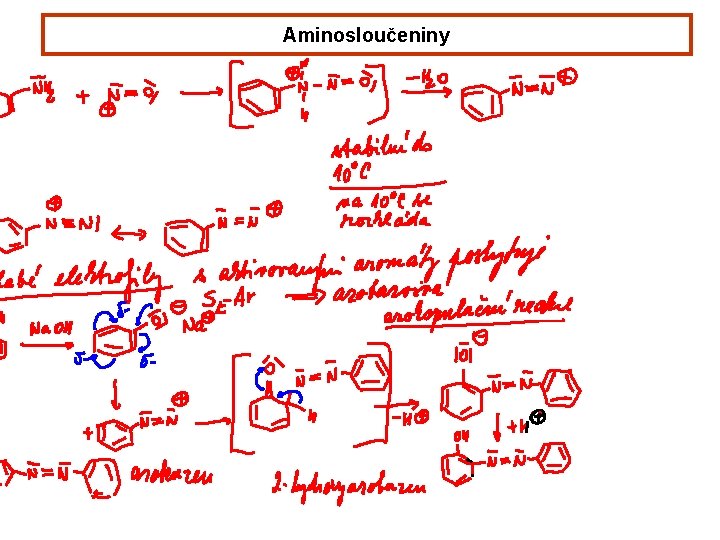 Aminosloučeniny
NH2 + N=O → N-N=O -H2O → N=N
H
stabilní do
10°C
na 10°C se
rozkládá
N≡N| ↔ N=N
slabé elektrofily s aktivovanými aromáty poskytují
SE-Ar ⇒ azobarviva
azokopulační reakce
NaOH → O⊖ Na⊕
δ-
δ- δ-
|O|⊖
+ N=N⊕ → O N=N -H⊕ → N=N
H H
+H⊕
OH
N=N
N=N azobazen
2-hydroxyazobazen